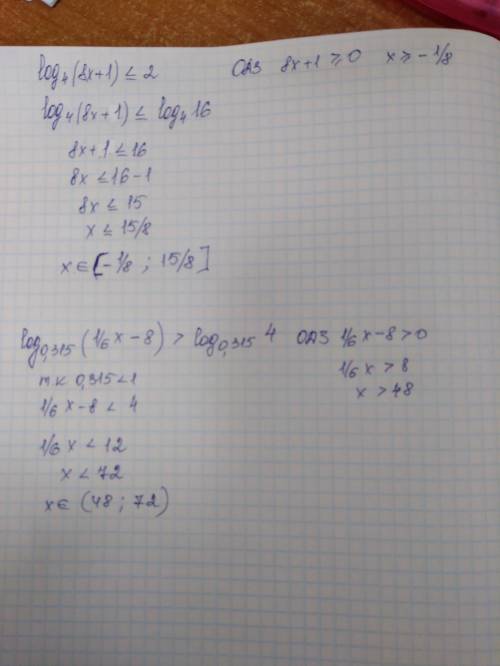 log₄(8x+1) ≤ 2 ОДЗ 8x+1 ≥ 0 x ≥ -1/8
log₄(8x+1) ≤ log₄ 16
8x+1 ≤ 16
8x ≤ 16-1
8x ≤ 15
x ≤ 15/8
x ∈ [-1/8 ; 15/8]
log₀,₃₁₅ (1/6 x - 8) > log₀,₃₁₅ 4 ОДЗ 1/6 x - 8 > 0
т.к 0,315 < 1 1/6 x > 8
1/6 x - 8 < 4 x > 48
1/6 x < 12
x < 72
x ∈ (48 ; 72)